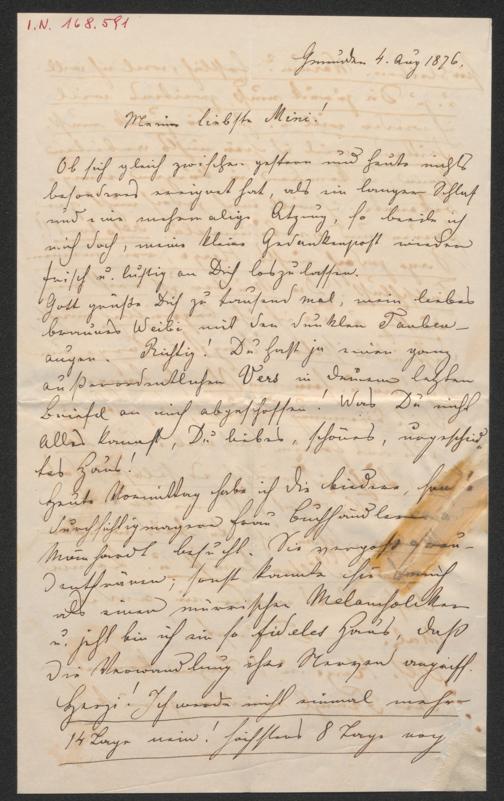 I.N. 168.591
Gmunden 4. Aug 1876.
Meine liebste Mini!
Ob sich gleich zwischen gestern und heute nichts
besonderes ereignet hat, als ein langer Schlaf
und eine mehrmalige Atzung, so beeile ich
mich doch, meine kleine Gedankenpost wieder
frisch u. lustig an Dich loszulassen.
Gott grüße Dich zu tausend mal, mein liebes
braunes Weibi mit den dunklen Tauben-
augen. Richtig! Du hast ja einen ganz
außerordentlichen Vers in Deinem letzten
Briefe an mich abgeschossen! Was Du nicht
Alles kannst, Du liebes, schönes, ungeschick-
tes Haus!
Heute Vormittag habe ich die biedere,
durchsichtigmagere Frau Buchhändler
Mänhardt besucht. Sie vergoß Freu-
denthränen; sonst kannte sie mich
als einen mürrischen Melancholiker
u. jetzt bin ich ein so fideles Haus, daß
die Verwandlung ihre Nerven angriff.
Herzi! Ich werde nicht einmal mehr
14 Tage nein! höchstens 8 Tage noch